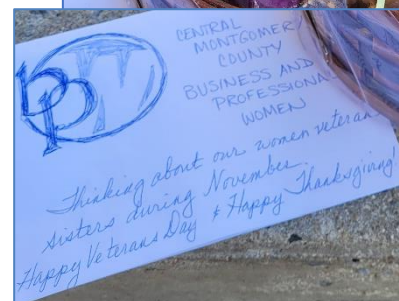 bp W
CENTRAL
MONTGOMERY
COUNTY
BUSINESS AND
PROFESSIONAL
WOMEN
Thinking about our women veteran
sisters during November.
Happy Veterans Day & Happy Thanksgiving!